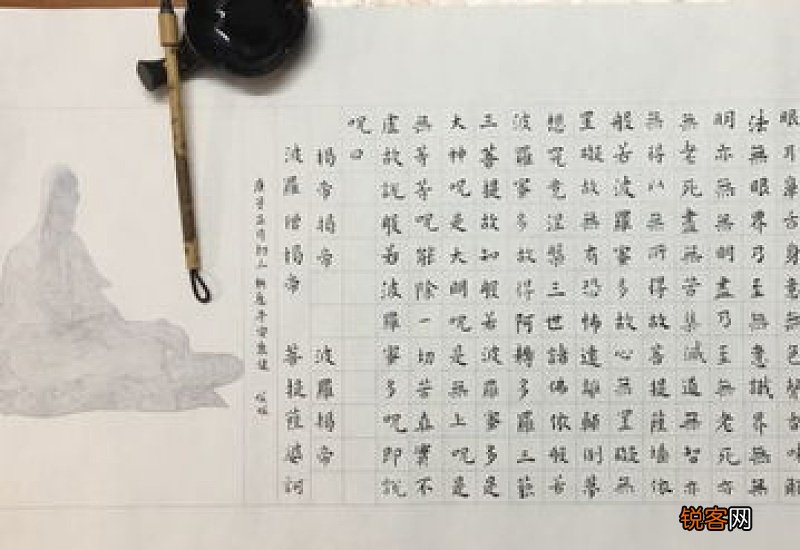 眼耳鼻舌身意無色聲香味觸
法無眼界乃至無意識界無無
明亦無無明盡乃至無老死亦
無老死盡無苦集滅道無智亦
無得以無所得故菩提薩埵依
般若波羅蜜多故心無罣礙無
罣礙故無有恐怖遠離顛倒夢
想究竟涅槃三世諸佛依般若
波羅蜜多故得阿耨多羅三藐
三菩提故知般若波羅蜜多是
大神呪是大明呪是無上呪是
無等等呪能除一切苦真實不
虛故說般若波羅蜜多呪即說
呪曰
揭帝揭帝 波羅揭帝
波羅僧揭帝 菩提薩婆訶
庚子正月初三
锐客网